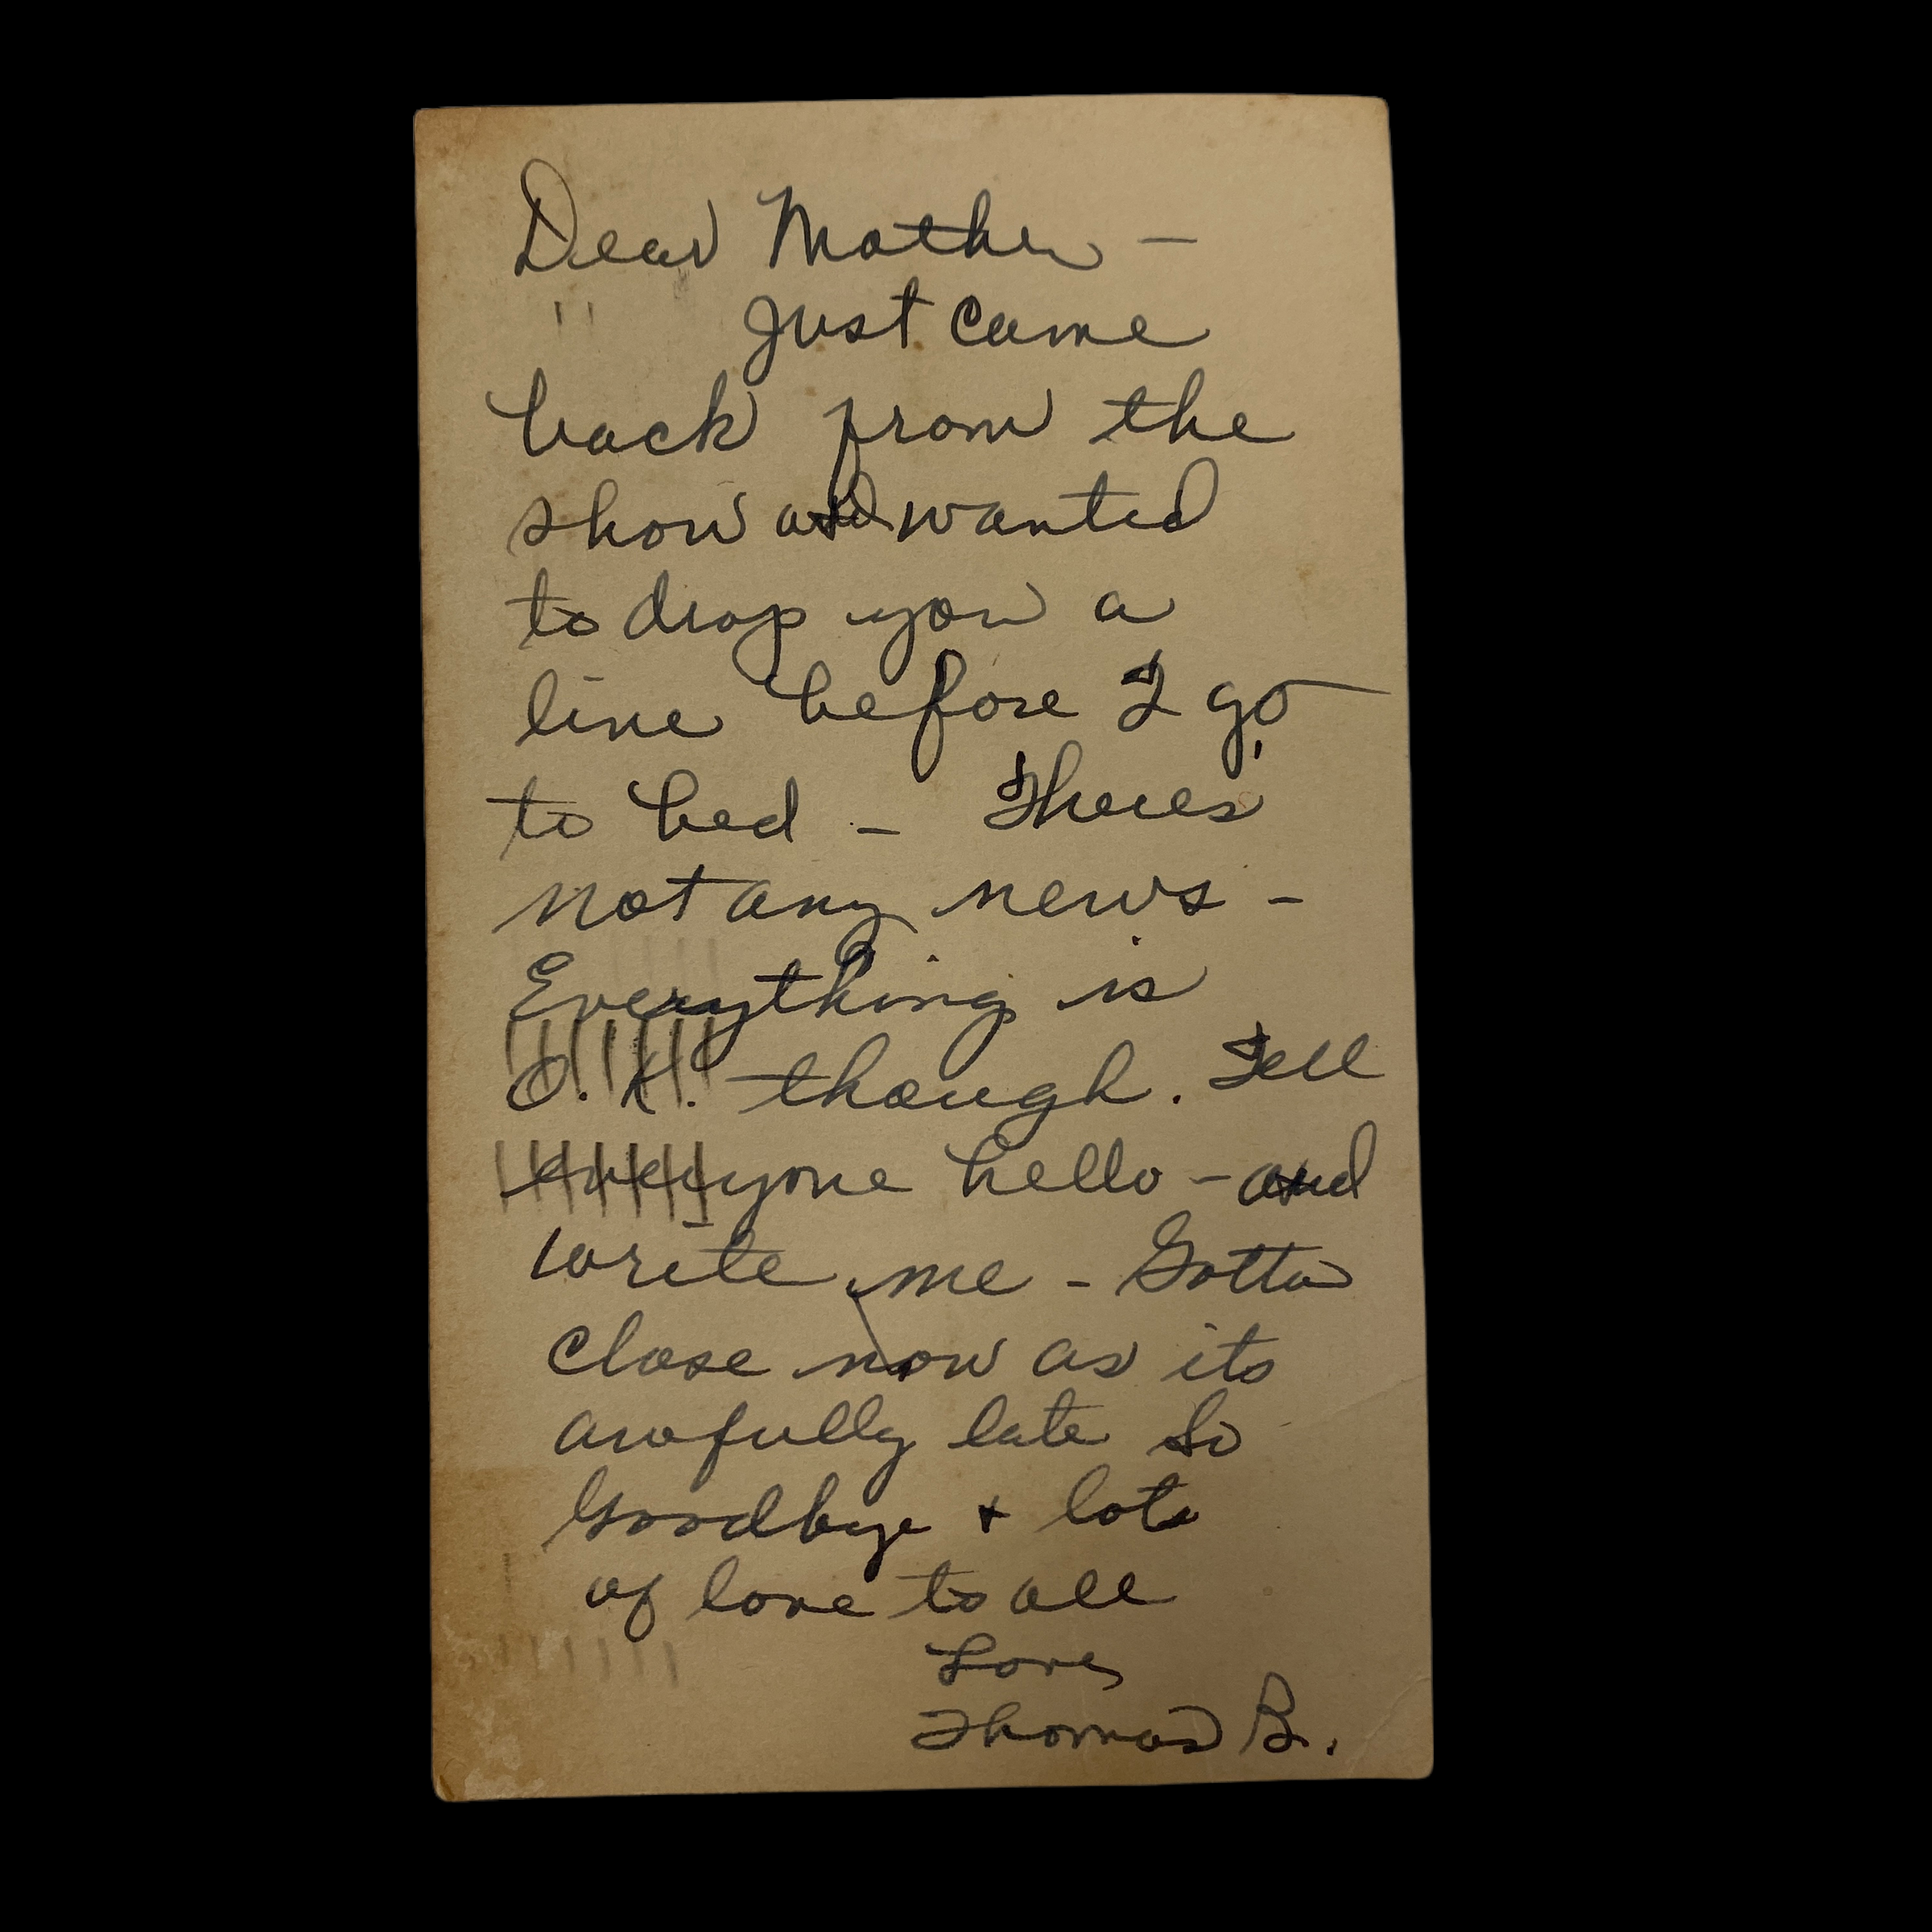 Dear Mother —
Just came
back from the
show and wanted
to drop you a
line before I go
to bed — There's
not any news —
Everything is
O.K. though. Tell
everyone hello — and
write me — Gotta
close now as its
awfully late So
Goodbye + lots
of love to all
Love,
Thomas B.